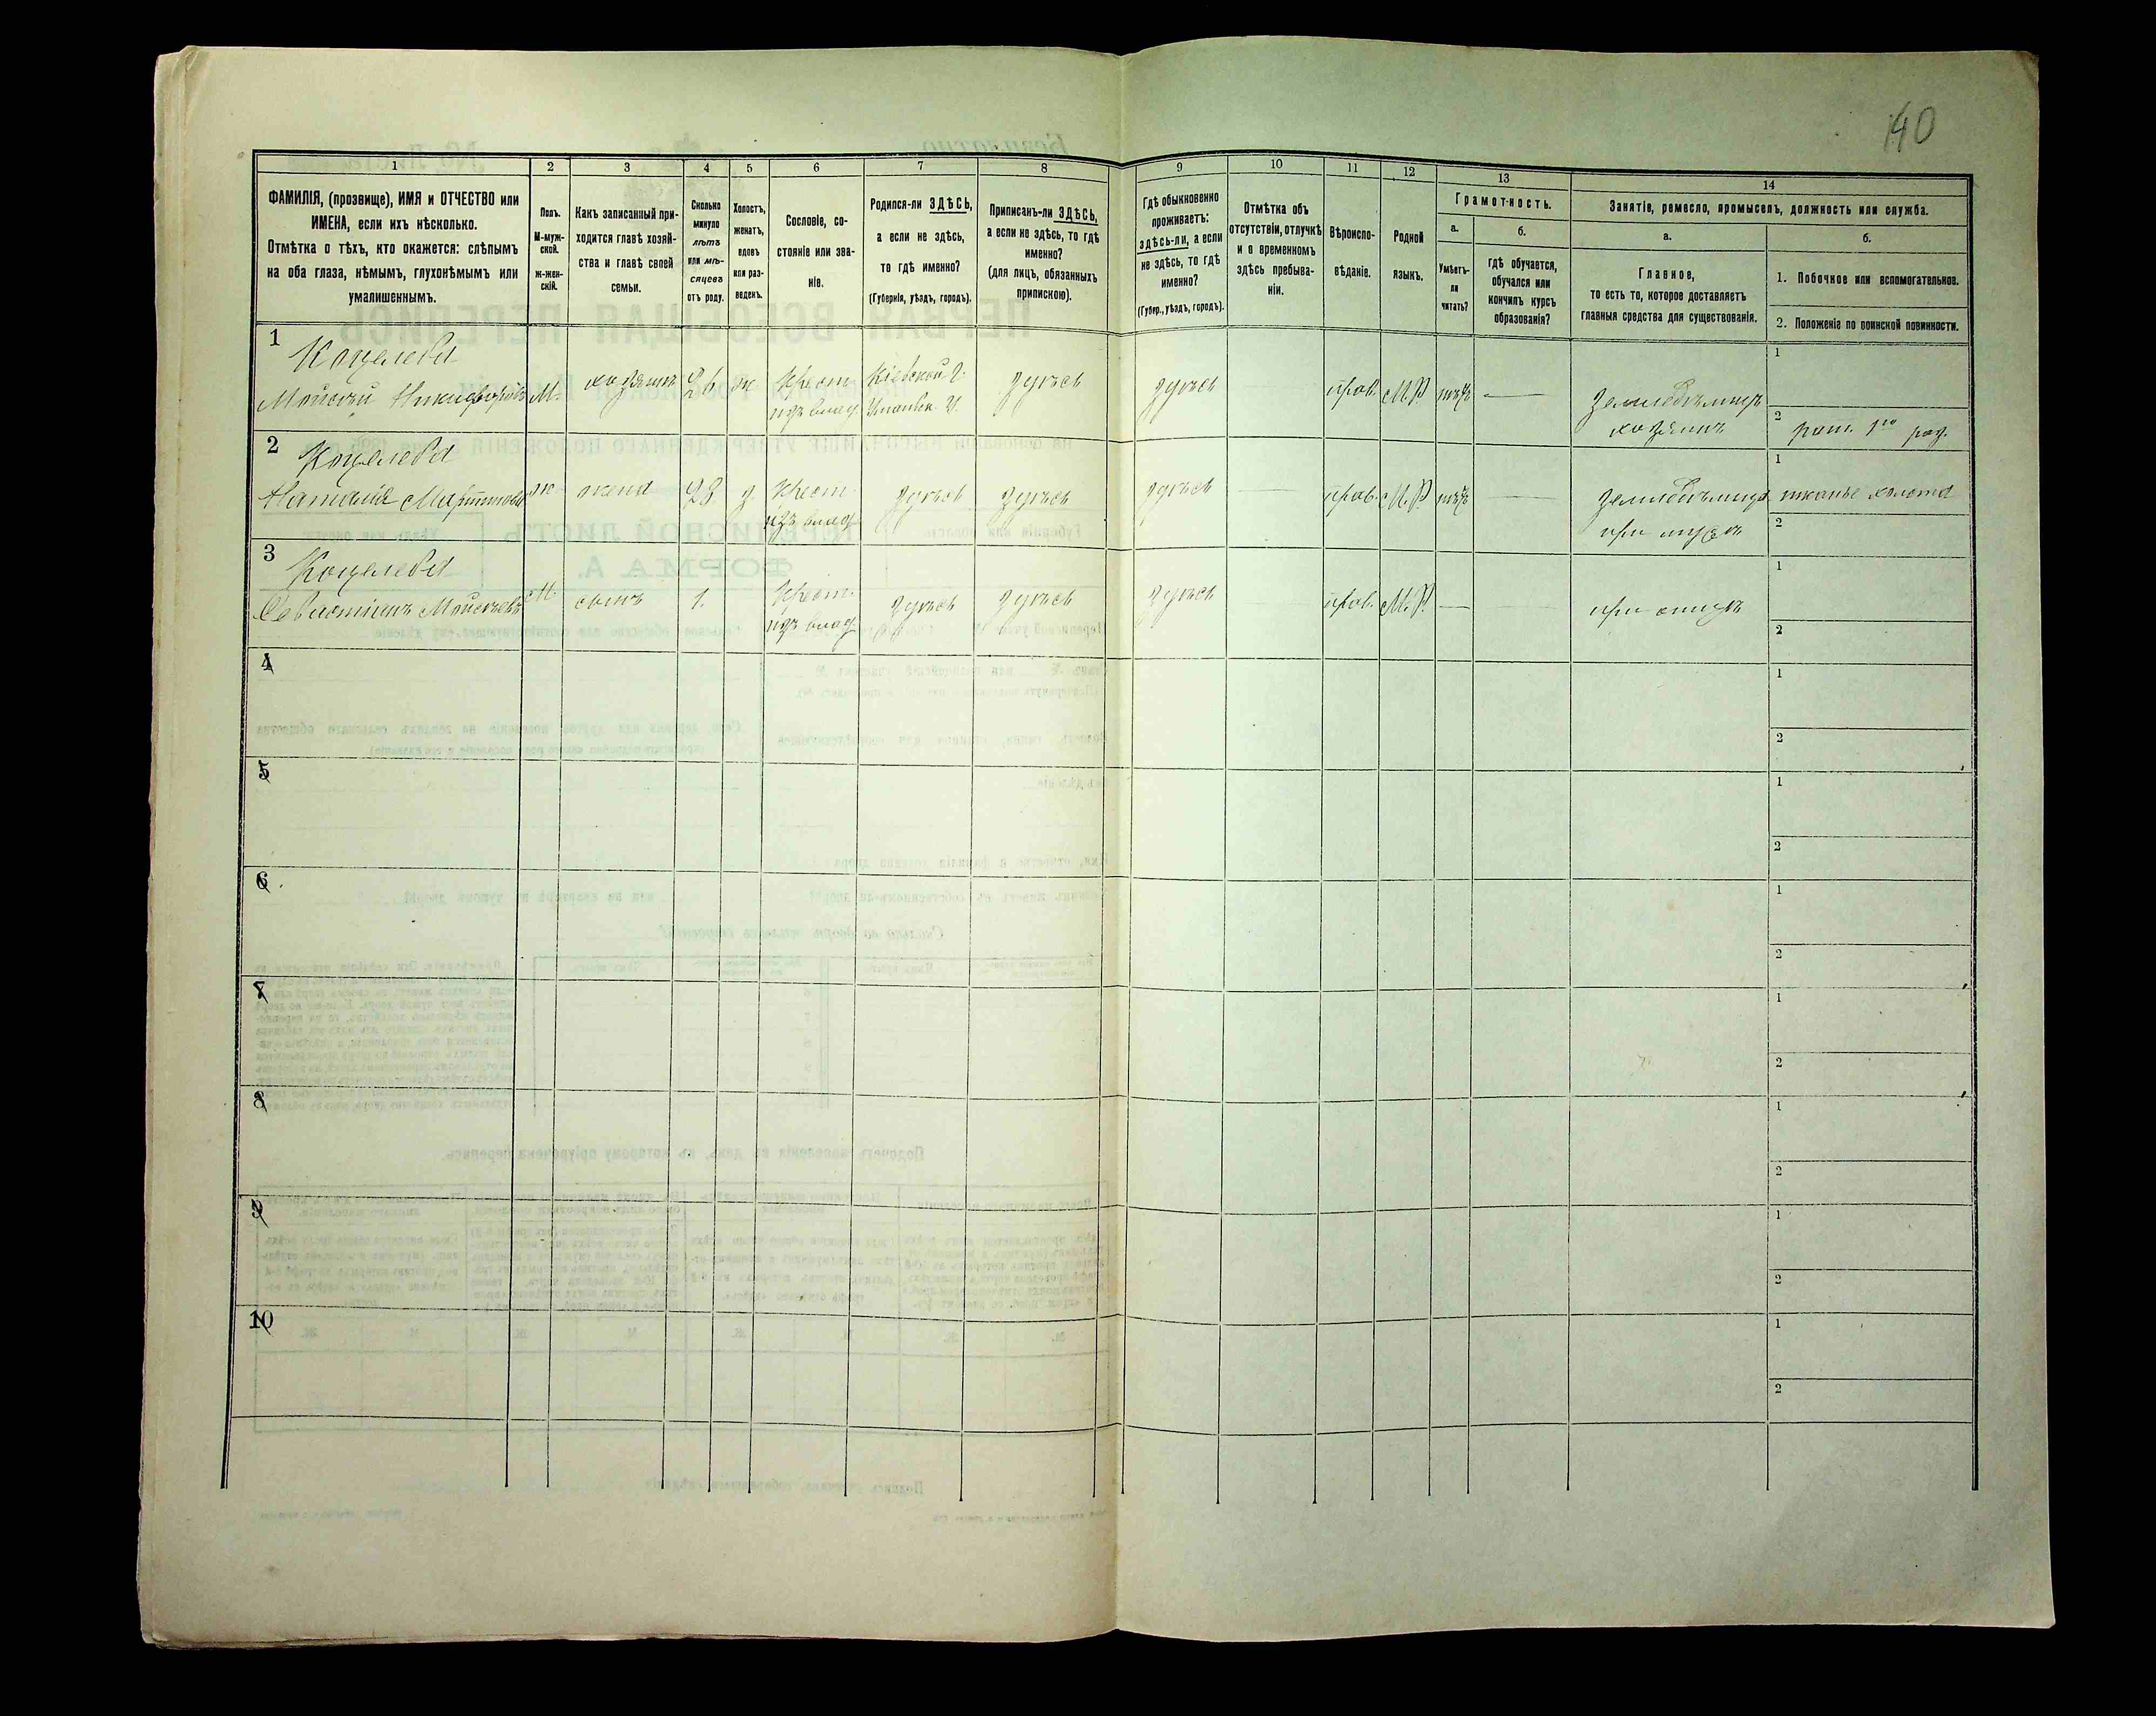 140
1
2
3
4
5
6
7
8
9
10
11
12
13
14
ФАМИЛІЯ, (прозвище), ИМЯ и ОТЧЕСТВО или
ИМЕНА, если ихъ нѣсколько.
Отмѣтка о тѣхъ, кто окажется: слѣпымъ
на оба глаза, нѣмымъ, глухонѣмымъ или
умалишеннымъ.
Полъ.
М-муж-
ской.
ж-жен-
скій.
Какъ записанный при-
ходится главѣ хозяй-
ства и главѣ своей
семьи.
Сколько
минуло
лѣтъ
или мѣ-
сяцевъ
отъ роду.
Холостъ,
женатъ,
вдовъ
или раз-
веденъ.
Сословіе, со-
стояніе или зва-
ніе.
Родился-ли ЗДѢСЬ,
а если не здѣсь,
то гдѣ именно?
(Губернія, уѣздъ, городъ).
Приписанъ-ли ЗДѢСЬ,
а если не здѣсь, то гдѣ
именно?
(для лицъ, обязанныхъ
припискою).
Гдѣ обыкновенно
проживаетъ:
здѣсь-ли, а если
не здѣсь, то гдѣ
именно?
(Губер., уѣздъ, городъ).
Отмѣтка объ
отсутствіи, отлучкѣ
и о временномъ
здѣсь пребыва-
ніи.
Вѣроиспо-
вѣданіе.
Родной
языкъ.
Грамотность.
а.
Умѣетъ-
ли
читать?
б.
гдѣ обучается,
обучался или
кончилъ курсъ
образованія?
Занятіе, ремесло, промыселъ, должность или служба.
а.
Главное,
то есть то, которое доставляетъ
главныя средства для существованія.
б.
1. Побочное или вспомогательное.
2. Положеніе по воинской повинности.
1
Мойсей Никифоровъ М. хозяинъ 26 ж. Крест. Кіевской г. здѣсь здѣсь — прав. М.Р. нѣтъ —
изъ влад. Уманск. у.
Земледѣлецъ
хозяинъ
1
2 рат. 1го раз.
2
Наталія Мартинова ж жена 23 з. Крест. здѣсь здѣсь здѣсь — прав. М.Р. нѣтъ —
изъ влад.
при мужѣ
1 тканье холста
2
3
Севастіянъ Мойсеевъ М. сынъ 1. Крест. здѣсь здѣсь здѣсь прав. М.Р. — —
изъ влад.
при отцѣ
1
2
4
1
2
5
1
2
6
1
2
7
1
2
8
1
2
9
1
2
10
1
2